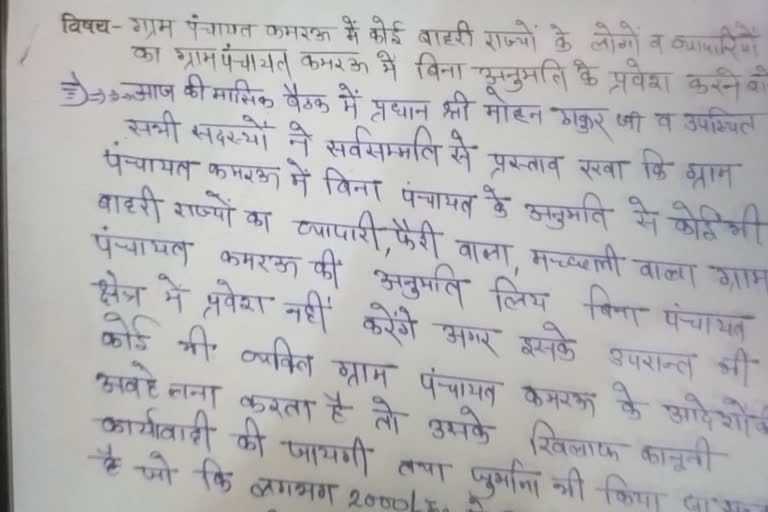 विषय- ग्राम पंचायत कमरऊ में कोई बाहरी राज्यों के लोगों व व्यापारियों
का ग्राम पंचायत कमरऊ में बिना अनुमति के प्रवेश करने
आज की मासिक बैठक में प्रधान श्री मोहन ठाकुर जी व उपस्थित
सभी सदस्यों ने सर्वसम्मति से प्रस्ताव रखा कि ग्राम
पंचायत कमरऊ में बिना पंचायत के अनुमति से कोई भी
बाहरी राज्यों का व्यापारी, फैरी वाला, मच्छली वाला ग्राम
पंचायत कमरऊ की अनुमति लिय बिना पंचायत
क्षेत्र में प्रवेश नहीं करेंगे अगर इसके उपरान्त भी
कोई भी व्यक्ति ग्राम पंचायत कमरऊ के आदेशों
अवहेलना करता है तो उसके खिलाफ कानूनी
कार्यावाही की जायगी तथा जुर्माना भी किया
है जो कि लगभग 2000/-